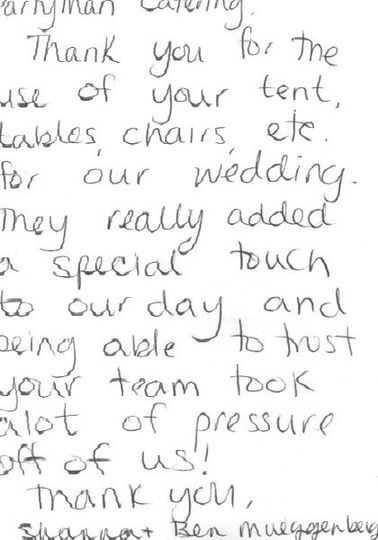 artyman Catering.
Thank you for the
use of your tent,
tables, chairs, etc.
for our wedding.
They really added
a special touch
to our day and
being able to trust
your team took
alot of pressure
off of us!
Thank you,
Shanna + Ben Mueggenberg